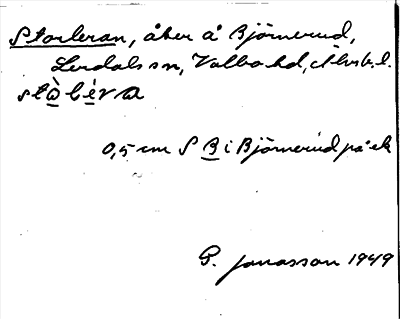 Storleran, åker å Björnerud,
Lerdals sn, Valbo hd, Älvsb. l.
stòléra
0,5 cm S B i Björnerud på ek
G. Jonasson 1949